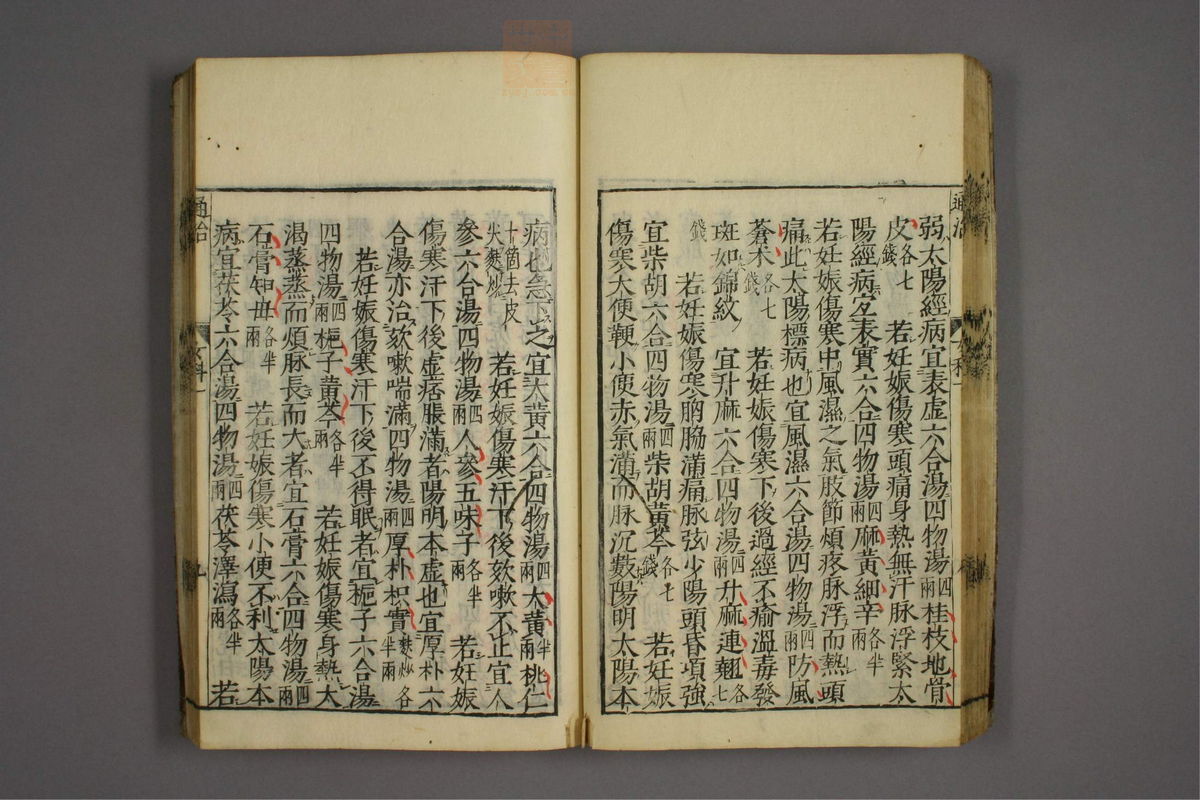 弱太陽經病宜表虛六合湯四物湯四兩桂枝地骨
皮各七錢　若妊娠傷寒頭痛身熱無汗脉浮緊太
陽經病宜表實六合四物湯四兩麻黃細辛各半兩
若妊娠傷寒中風濕之氣肢節煩疼脉浮而熱頭
痛此太陽標病也宜風濕六合湯四物湯四兩防風
蒼朮各七錢　若妊娠傷寒下後過經不瘉溫毒發
斑如錦紋　宜升麻六合四物湯四兩升麻連翹各七
錢　若妊娠傷寒胷脇滿痛脉弦少陽頭昏項強
宜柴胡六合四物湯四兩柴胡黃芩各七錢　若妊娠
傷寒大便鞕小便赤氣滿而脉沉數陽明太陽本
病也急下之宜大黃六合四物湯四兩大黃半兩桃仁
十箇去皮尖麩炒　若妊娠傷寒汗下後欬嗽不止宜人
參六合湯四物湯四兩人參五味子各半兩　若妊娠
傷寒汗下後虛痞脹滿者陽明本虛也宜厚朴六
合湯亦治欬嗽喘滿四物湯四兩厚朴枳實麩炒各半兩
若妊娠傷寒汗下後不得眠者宜梔子六合湯
四物湯四兩梔子黃芩各半兩　若妊娠傷寒身熱大
渴蒸蒸而煩脉長而大者宜石膏六合四物湯四兩
石膏知母各半兩　若妊娠傷寒小便不利太陽本
病宜茯苓六合湯四物湯四兩茯苓澤瀉各半兩　若
通治
女科一
九